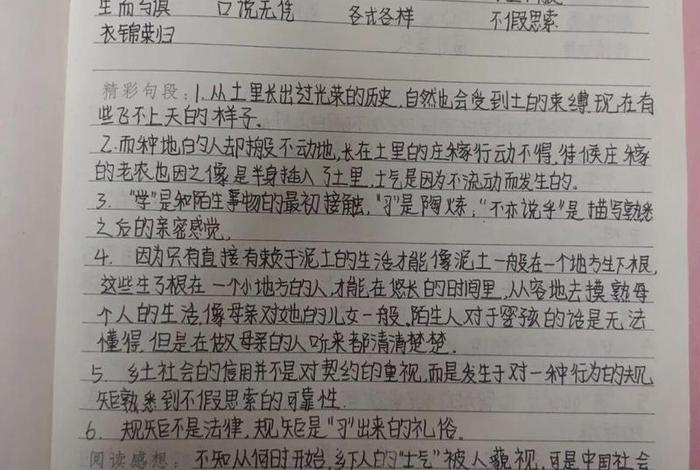 生而与俱 口说无凭 各式各样 不假思索
衣锦荣归
精彩句段：1.从土里长出过光荣的历史,自然也会受到土的束缚,现在有
些飞不上天的样子.
2.而种地的人却搬不动地,长在土里的庄稼行动不得,待候庄稼
的老农也因之像是半身插入了土里,土气是因为不流动而发生的.
3. “学”是和陌生事物的最初接触,“习”是陶炼,“不亦说乎”是描写熟悉
之后的亲密感觉.
4. 因为只有直接有赖于泥土的生活才能像泥土一般在一个地方生下根,
这些生了根在一个小地方的人,才能在悠长的时间里,从容地去摸熟每
个人的生活,像母亲对她的儿女一般.陌生人对于婴孩的话是无法
懂得,但是在做母亲的人听来都清清楚楚.
5. 乡土社会的信用并不是对契约的重视,而是发生于对一种行为的规
矩熟悉到不假思索的可靠性.
6. 规矩不是法律,规矩是“习”出来的礼俗.
阅读感想：不知从何时开始,乡下人的“土气”被人藐视,可是中国社会